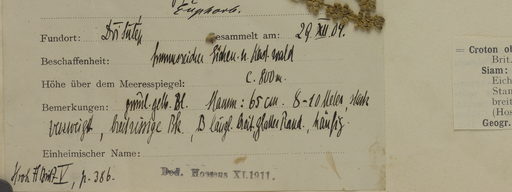 Euphorb.
Fundort: Doi Sutep Gesammelt am: 29. XII. 04.
Beschaffenheit: humusreicher Eichen- u. Hart wald
Höhe über dem Meeresspiegel: c. 800 m.
Bemerkungen: grünl. gelb. Bl. Stamm: 65 cm. 8-10 Meter, stark
verzweigt, breitrissige Rk., B. längl. breit glatter Rand, häufig
Einheimischer Name:
Hrch. H. Bot. V, p. 386.
Ded. Hosseus XI.1911.
= Croton ob
Brit.
Siam:
Eich
Stan
breit
(Hos
Geogr.